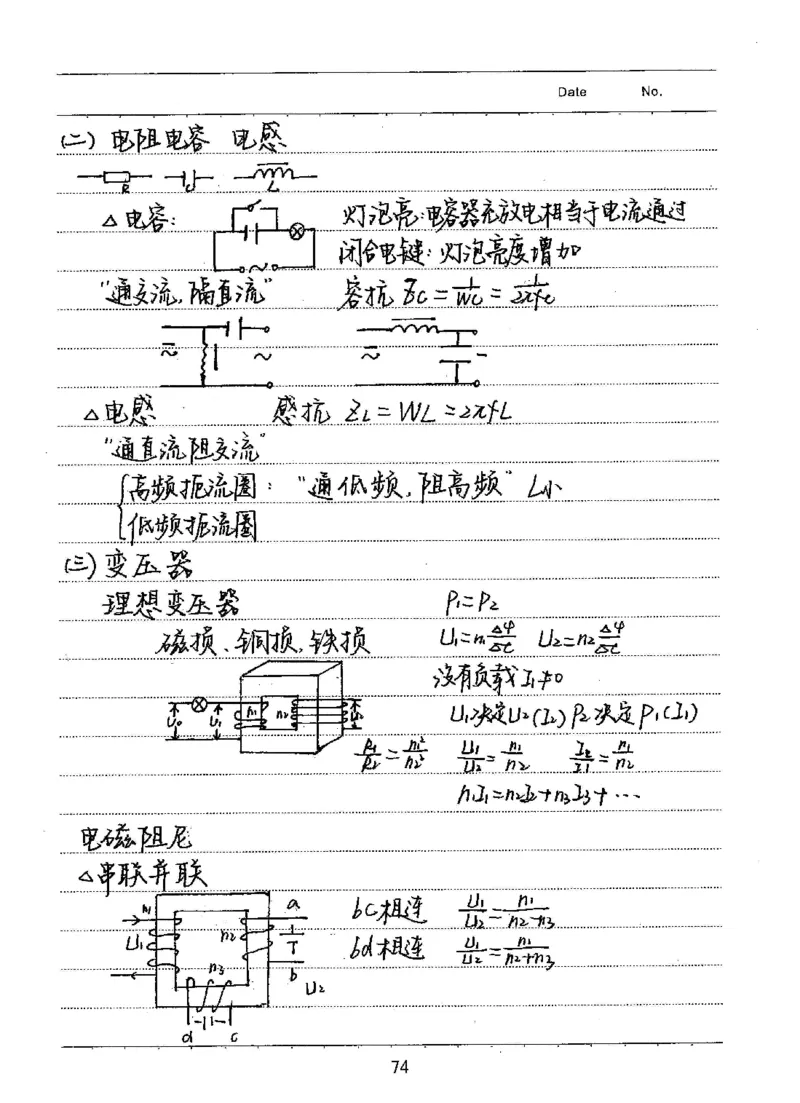 Date No.
(二) 电阻 电容 电感
R C L
△电容: 灯泡亮:电容器充放电相当于电流通过
闭合电键:灯泡亮度增加
"通交流,隔直流" 容抗 Zc=1/Wc=1/2πfc
△电感 感抗 ZL=WL=2πfL
"通直流阻交流"
高频扼流圈: "通低频,阻高频" L小
低频扼流圈
(三) 变压器
理想变压器 P1=P2
磁损、铜损,铁损 U1=n1 Δφ/Δt U2=n2 Δφ/Δt
没有负载 I1≠0
U0 U1 n1 n2 U2
U1决定U2(I2) P2决定P1(I1)
R1/R2=n1²/n2² U1/U2=n1/n2 I2/I1=n1/n2
n1I1=n2I2+n3I3+…
电磁阻尼
△串联并联
n1 U1 n2 n3 a b U2 d c
bc相连 U1/U2=n1/n2-n3
bd相连 U1/U2=n1/n2+n3
74